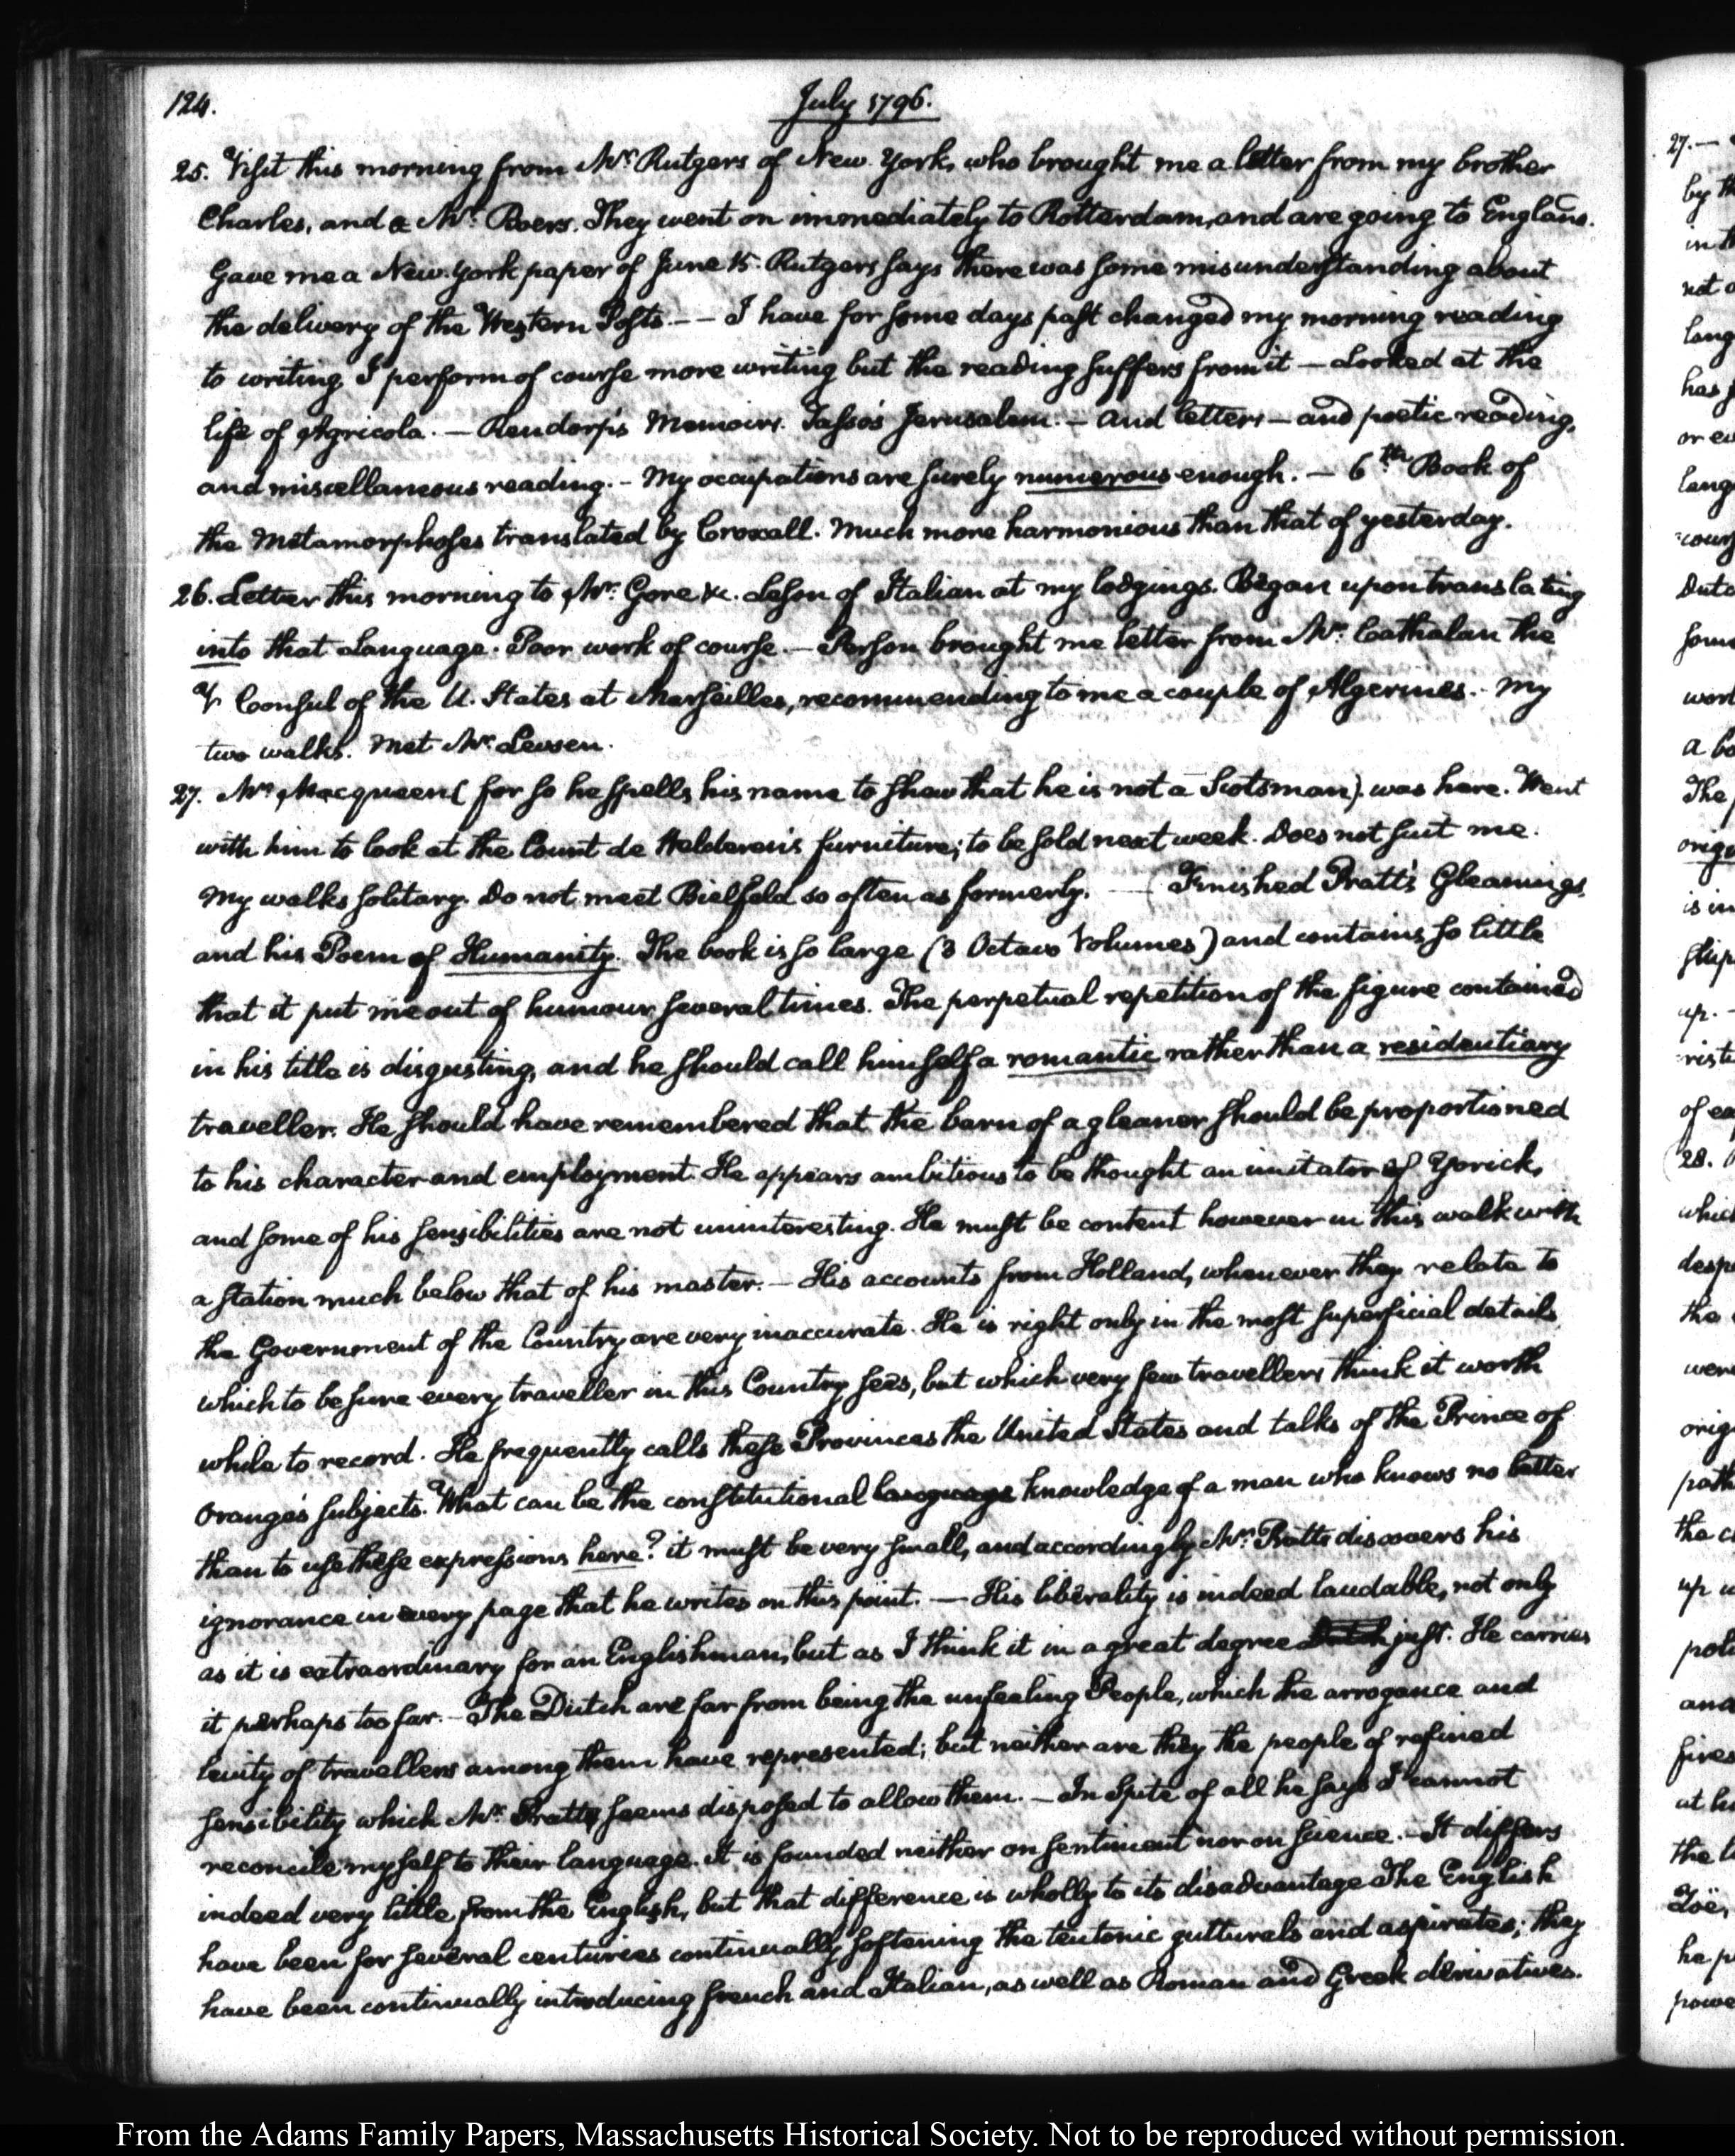 124.
July 1796.
25. Visit this morning from Mr. Rutgers of New York, who brought me a letter from my brother
Charles, and a Mr. Roers. They went on immediately to Rotterdam, and are going to England.
Gave me a New York paper of June 15. Rutgers says there was some misunderstanding about
the delivery of the Western Posts. — — I have for some days past changed my morning reading
to writing. I perform of course more writing but the reading suffers from it — Looked at the
life of Agricola. — Rendorp's Memoirs. Tasso's Jerusalem. — and letters — and poetic reading,
and miscellaneous reading. - My occupations are surely numerous enough. — 6th Book of
the Metamorphoses translated by Croxall. Much more harmonious than that of yesterday.
26. Letter this morning to Mr. Gore &c. Lesson of Italian at my lodgings. Began upon translating
into that Language. Poor work of course. — Person brought me letter from Mr. Cathalan the
V. Consul of the U. States at Marseilles, recommending to me a couple of Algerines. - My
two walks. Met Mr. Levsen.
27. Mr. Macqueen (for so he spells his name to shew that he is not a Scotsman) was here. Went
with him to look at the Count de Welderen's furniture; to be sold next week. Does not suit me.
My walks solitary. Do not meet Bielfeld so often as formerly. — Finished Pratt's Gleanings,
and his Poem of Humanity. The book is so large (3 Octavo Volumes) and contains so little
that it put me out of humour several times. The perpetual repetition of the figure contained
in his title is disgusting, and he should call himself a romantic rather than a residentiary
traveller. He should have remembered that the barn of a gleaner should be proportioned
to his character and employment. He appears ambitious to be thought an imitator of Yorick,
and some of his sensibilities are not uninteresting. He must be content however in this walk with
a station much below that of his master. — His accounts from Holland, whenever they relate to
the Government of the Country are very inaccurate. He is right only in the most superficial details
which to be sure every traveller in this Country sees, but which very few travellers think it worth
while to record. He frequently calls these Provinces the United States and talks of the Prince of
Orange's subjects. What can be the constitutional language knowledge of a man who knows no better
than to use these expressions here? it must be very small, and accordingly Mr. Pratt discovers his
ignorance in every page that he writes on this point. — His liberality is indeed laudable, not only
as it is extraordinary for an Englishman, but as I think it in a great degree just. He carries
it perhaps too far. — The Dutch are far from being the unfeeling People, which the arrogance and
levity of travellers among them have represented; but neither are they the people of refined
sensibility which Mr. Pratt seems disposed to allow them. — In Spite of all he says I cannot
reconcile myself to their language. it is founded neither on sentiment nor on science. — It differs
indeed very little from the English, but that difference is wholly to its disadvantage. The English
have been for several centuries continually softening the teutonic gutturals and aspirates; they
have been continually introducing french and Italian, as well as Roman and Greek derivatives.
27. —
by th
in th
not o
lang
has
or ev
lang
cours
Dutc
some
word
a bo
The
orig
is in
up. -
rist
of ea
28.
whic
desp
the
were
orig
path
the c
up
poli
and
fires
at h
the l
he p
powe
From the Adams Family Papers, Massachusetts Historical Society. Not to be reproduced without permission.